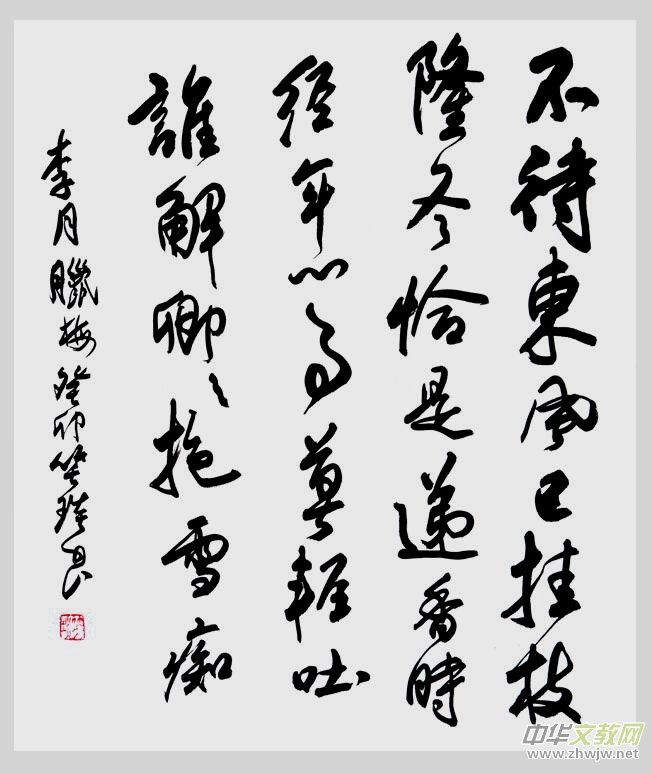 不待東風已挂枝
隆冬恰是遞香時
經年心事莫輕吐
誰解卿〻抱雪痴
李月臘梅癸卯
中华文教网
www.zhwjw.net